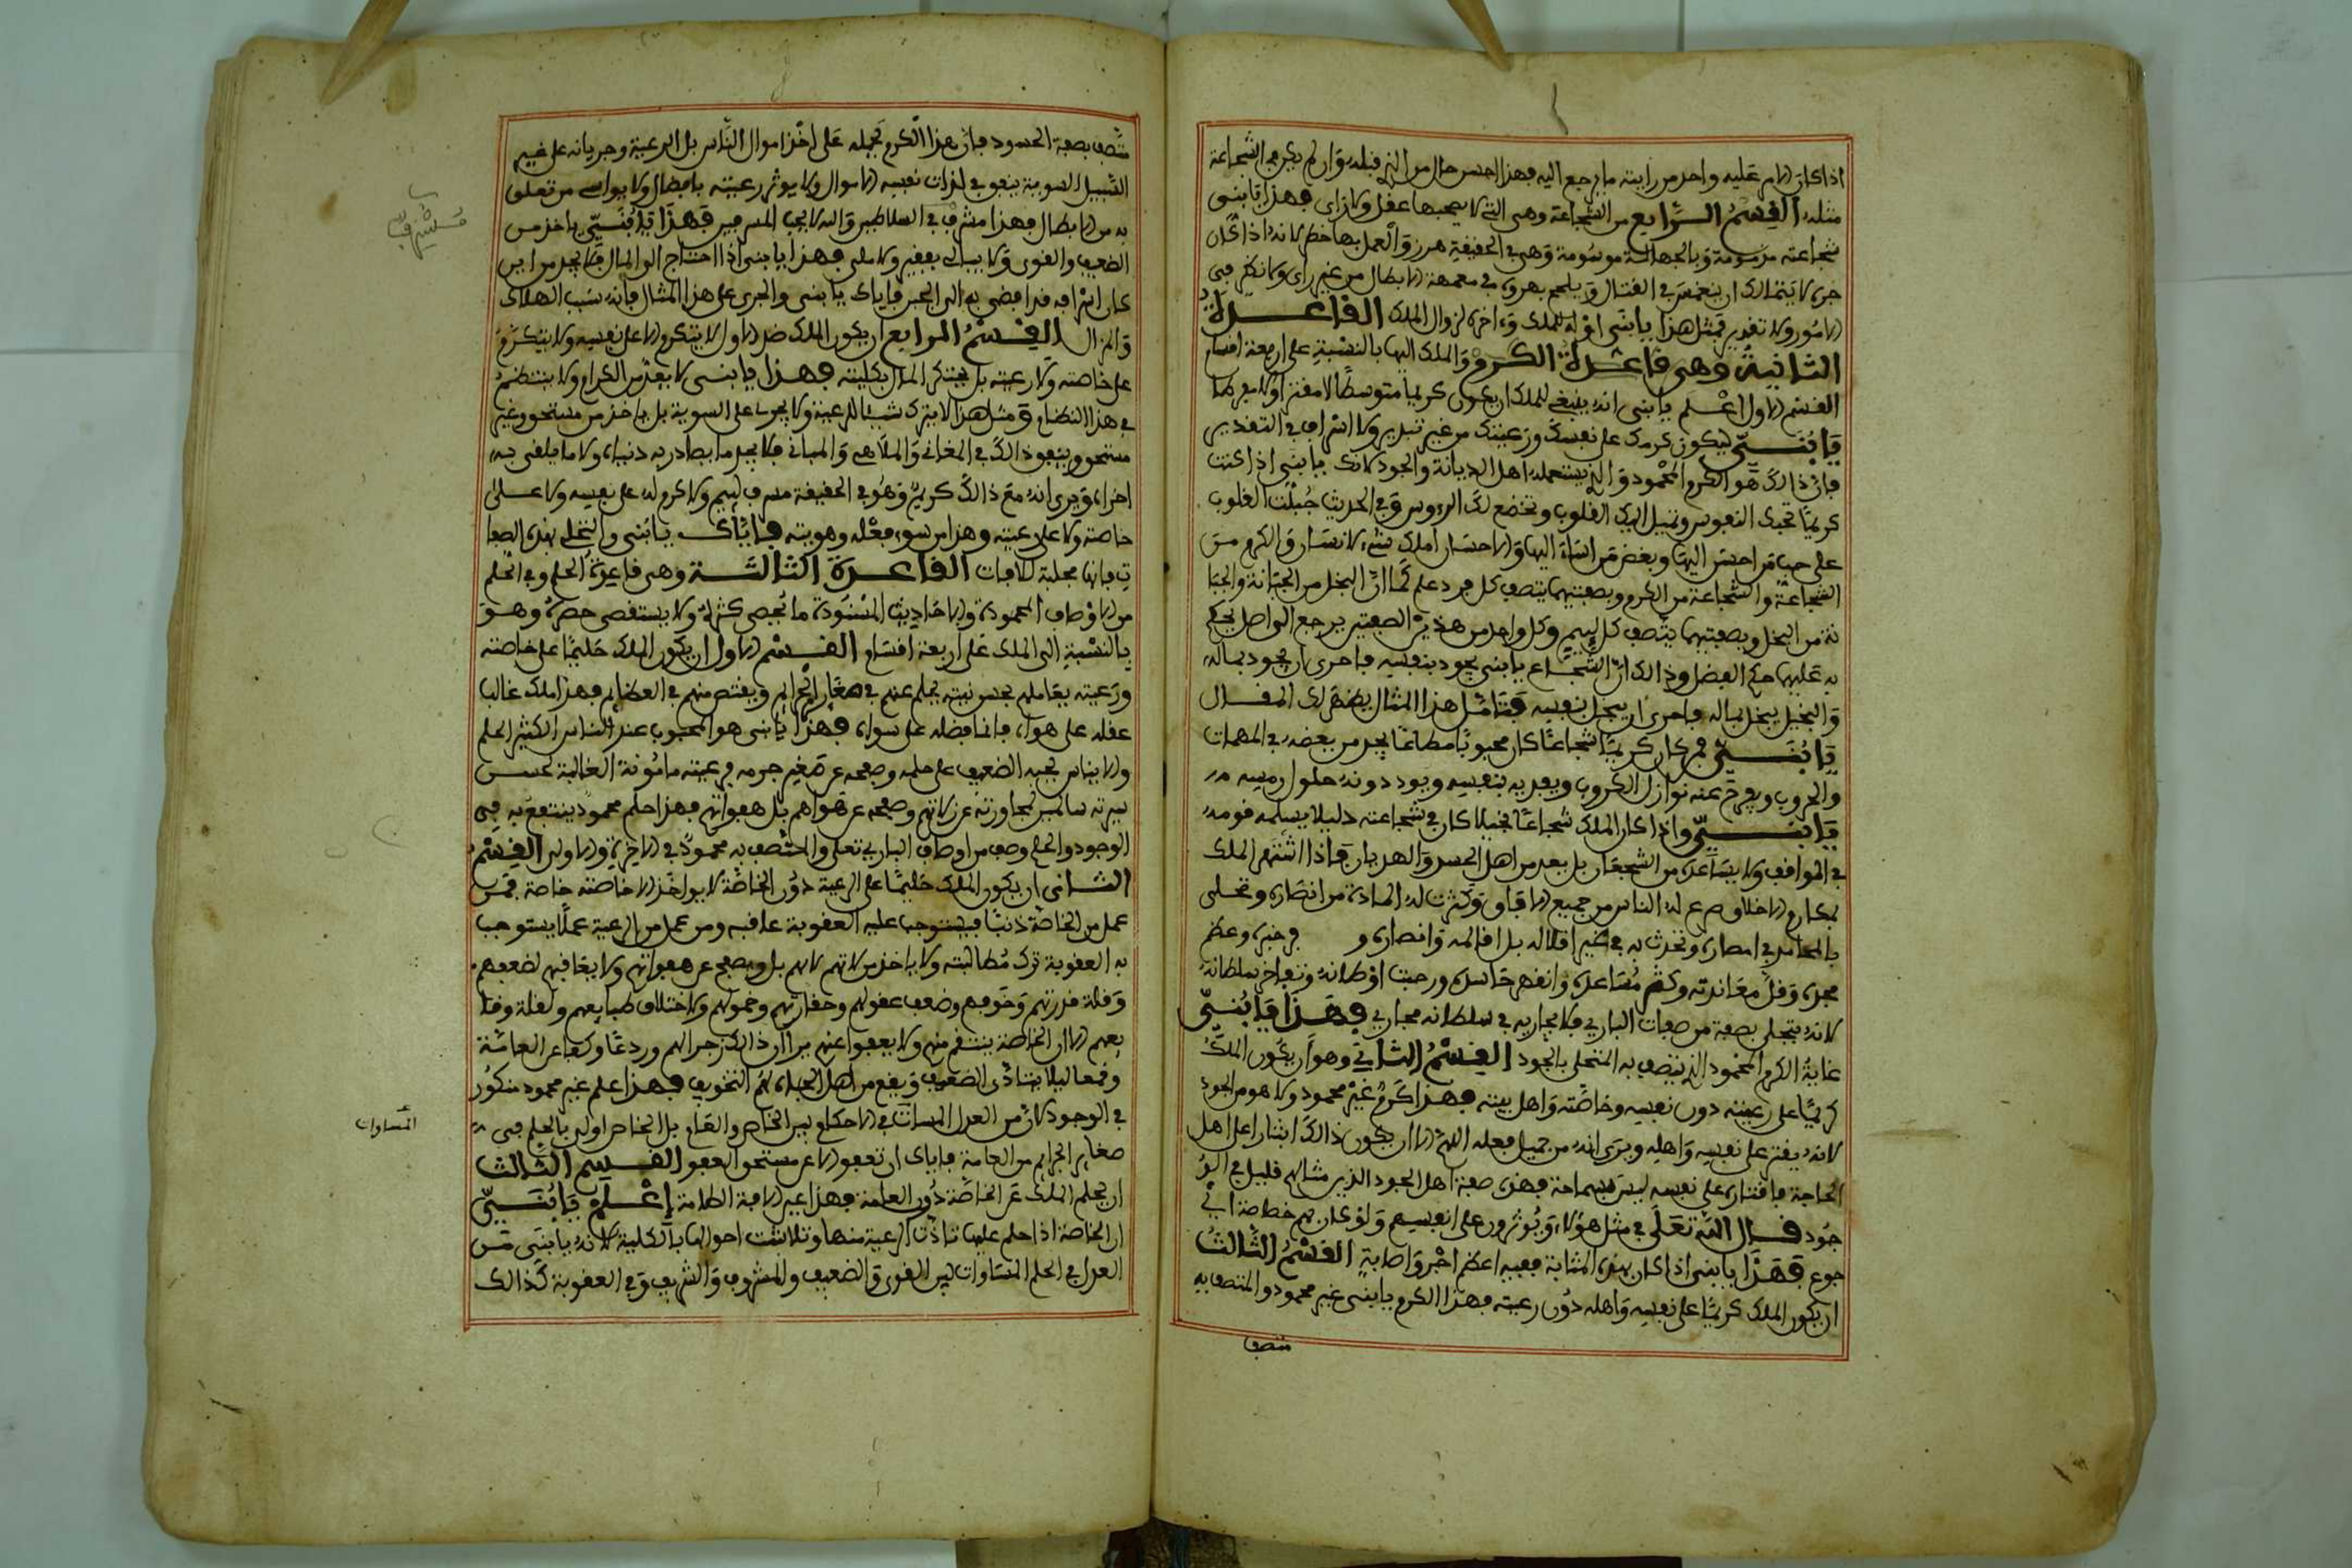 اذا كان الامر عليه واحد من رايته ما يرجع اليه فهذا احسن حال من الذي قبله وان لم يكن في الشجاعة
مثله القسم الرابع من الشجاعة وهي التي لا يصحبها عقل ولا راي فهذا يا بنى
شجاعته مذمومة وبالجهالة موسومة وهي في الحقيقة هرز والعمل بها خطر لانه اذا كان
لا يتمالك ان ينغمس في القتال ويلجم بهروه في معمعة الابطال من غير راي ولا نظر في
الامور ولا تقدير فمثل هذا يا بنى لزوال الملك القاعدة
الثانية وهي قاعدة الكرم والملك اليها بالنسبة على اربعة اقسام
القسم الاول اعلم يا بنى انه ينبغي للملك ان يكون كريما متوسطا لا مقترا ولا مفرطا
يا بني ليكون كرمك على نفسك ورعيتك من غير تبذير ولا اسراف في التقدير
فان ذالك هو الكرم المحمود والذي يستعمله اهل الديانة والجود لانك يا بني اذا كنت
كريما تحبك النفوس وتميل اليك القلوب وتخضع لك الرءوس وفي الحديث جبلت القلوب
على حب من احسن اليها وبغض من اساء اليها والاحسان املك شيء للانسان والكرم من
الشجاعة والشجاعة من الكرم وبصفتيهما يتصف كل فرد علم كما ان البخل من الجبانة والجبا
نة من البخل وبصفتيهما يتصف كل لييم وكل واحد من هذين الصفتين يرجع الى اصل يحكم
به عليهما حكم الفضل وذالك ان الشجاع يا بني يجود بنفسه فاحرى ان يجود بماله
والبخيل يبخل بماله فاحرى ان يبخل بنفسه فتامل هذا المثال يظهر لك المقال
يا بني فمن كان كريما شجاعا كان محبوبا مطاعا يجد من يعضده في المهمات
والحروب ويفرج عنه نوازل الكروب ويفديه بنفسه ويود دونه حلول رمسه
يا بني واذا كان الملك شجاعا بخيلا كان في شجاعته دليلا يسلمه قومه
في المواقف ولا يساعد من الشجعان بل يعد من اهل الحسد والهذيان فاذا اشتهر الملك
بمكارم الاخلاق هرع له الناس من جميع الافاق وكثرت له المادة من انصاره وتحلى
بالمحامد في امصاره وتحدث به في غير اقلاله بل اقالمه وانصاره و في خبره وعظم
مجده وقل معاندته وكثر مساعده وانقهر حاسده ورحبت اوطانه وتعاظم سلطانه
لانه يتجلى بصفة من صفات الباري فلا يجاريه في سلطانه مجاري فهذا يا بني
غاية الكرم المحمود الذي يتصف به المتحلي بالجود القسم الثاني وهو ان يكون الملك
كريما على رعيته دون نفسه وخاصته واهل بيته فهذا كرم غير محمود ولا هو من الجود
لانه يقتر على نفسه واهله ويرى انه من جميل فعله اللهم الا ان يكون ذالك ايثارا على اهل
الحاجة فاقتاره على نفسه ليس بسماحة فهذه صفة اهل الجود الذين مثالهم قليل في الو
جود قال الله تعلى في مثل هؤلاء ويوثرون على انفسهم ولو كان بهم خصاصة اي
جوع فهذا يا بنى اذا كان بهذه المثابة ففيه اعظم اجر واصابة القسم الثالث
ان يكون الملك كريما على نفسه واهله دون رعيته فهذا الكرم يا بنى غير محمود والمتصف به
متصف
متصف بصفة الحسود فان هذا الكرم يحمله على اخذ اموال الناس بل الرعية وجريانه على غير
السبيل السوية ينفق في لذات نفسه الاموال ولا يوثر رعيته بافضال ولا يواسي من تعلق
به من الابطال فهذا مشرف في السلاطين والله لا يحب المسرفين فهذا يا بني ياخذ من
الضعيف والقوى ولا يبالي بفقير ولا ملي فهذا يا بنى اذا احتاج الى المال فلا يجد من اين
كان اسرافه قد افضى به الى الجبر فاياك يا بنى والجري على هذا المثال فانه سبب الهلاك
والزال القسم الرابع ان يكون الملك ضد الاول لا يتكرم الا على نفسه ولا يتكرم
على خاصته ولا رعيته بل يحتكر المال بكليته فهذا يا بنى لا يعد من الكرام ولا ينتظم
في هذا النظام ومثل هذا لا يترك شيئا للرعية ولا يجرى على السوية بل ياخذ من مستحق وغير
مستحق وينفق ذالك في المغاني والملاهي والمباني فلا يجد ما يصادر به دنياه ولا ما يلقى به
اخراه ويرى انه مع ذالك كريم وهو في الحقيقة مسرف لييم ولا كرم له على نفسه ولا على
خاصته ولا على رعيته وهذا من سوء فعله وهويته فاياك يا بني والتحلي بهذه الصفا
ت فانها مجلبة للافات القاعدة الثالثة وهي قاعدة الحلم وفي الحلم
من الاوصاف المحمودة والاحاديث المسنودة ما يحصى كثرة ولا يستقصى حصره وهو
بالنسبة الى الملك على اربعة اقسام القسم الاول ان يكون الملك حليما على خاصته
ورعيته يعاملهم بحسن نيته يحلم عنهم في صغار الجرائم ويقتص منهم في العظائم فهذا ملك غالب
عقله على هواه فانما فضله على سواه فهذا يا بنى هو المحبوب عند الناس الكثير الحلم
والايناس يحبه الضعيف على حلمه وصفحه عن صغير جرمه فرعيته مامونة الغالبة لحسن
سيرته سالمين لمجاوزته عن زلاتهم وصفحه عن هواهم بل هفواتهم فهذا حلم محمود ينتفع به في
الوجود والحلم وصف من اوصاف الباري تعلى والمتصف به محمود في الاخرة والاولى القسم
الثاني ان يكون الملك حليما على الرعية دون الخاصة لا يواخذ الا خاصته خاصة فمن
عمل من الخاصة ذنبا فيستوجب عليه العقوبة عاقبه ومن عمل من الرعية عملا يستوجب
به العقوبة ترك مطالبته ولا ياخذ من لاتهم لانهم بل ويصفح عن هفواتهم ولا يعاقبهم لضعفهم
وقلة قدرتهم وخوفهم وضعف عقولهم وحقارتهم وخمولهم ولاختلاف طبايعهم ولقلة وقا
يعهم الا ان الخاصة ينتقم منهم ولا يعفوا عنهم يرا ان ذالك زجرا لهم وردعا وكفا عن العامة
وقمعا ليلا يتاذى الضعيف ويقع من اهل الجهل لهم التخويف فهذا علم غير محمود منكور
في الوجود لان من العدل المسات في الاحكام بين الخاص والعام بل الخاص اولى بالحلم في
صغاير الجرايم من العامة فاياك ان تعفو الا عن مستحق العفو القسم الثالث
ان يحلم الملك عن الخاصة دون العامة فهذا عين الافة الطامة اعلم يا بني
ان الخاصة اذا حلم عليها تاذت الرعية منها وتلاشت احوالها بالكلية لانه يا بني من
العدل في الحلم المتساوات بين القوي والضعيف والمشروف والشريف وفي العقوبة كذالك
المساوات